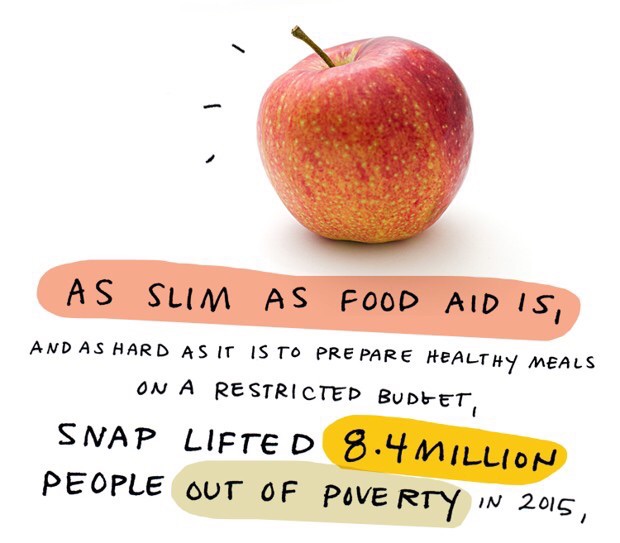 AS SLIM AS FOOD AID IS,
AND AS HARD AS IT IS TO PREPARE HEALTHY MEALS
ON A RESTRICTED BUDGET,
SNAP LIFTED 8.4 MILLION
PEOPLE OUT OF POVERTY IN 2015,